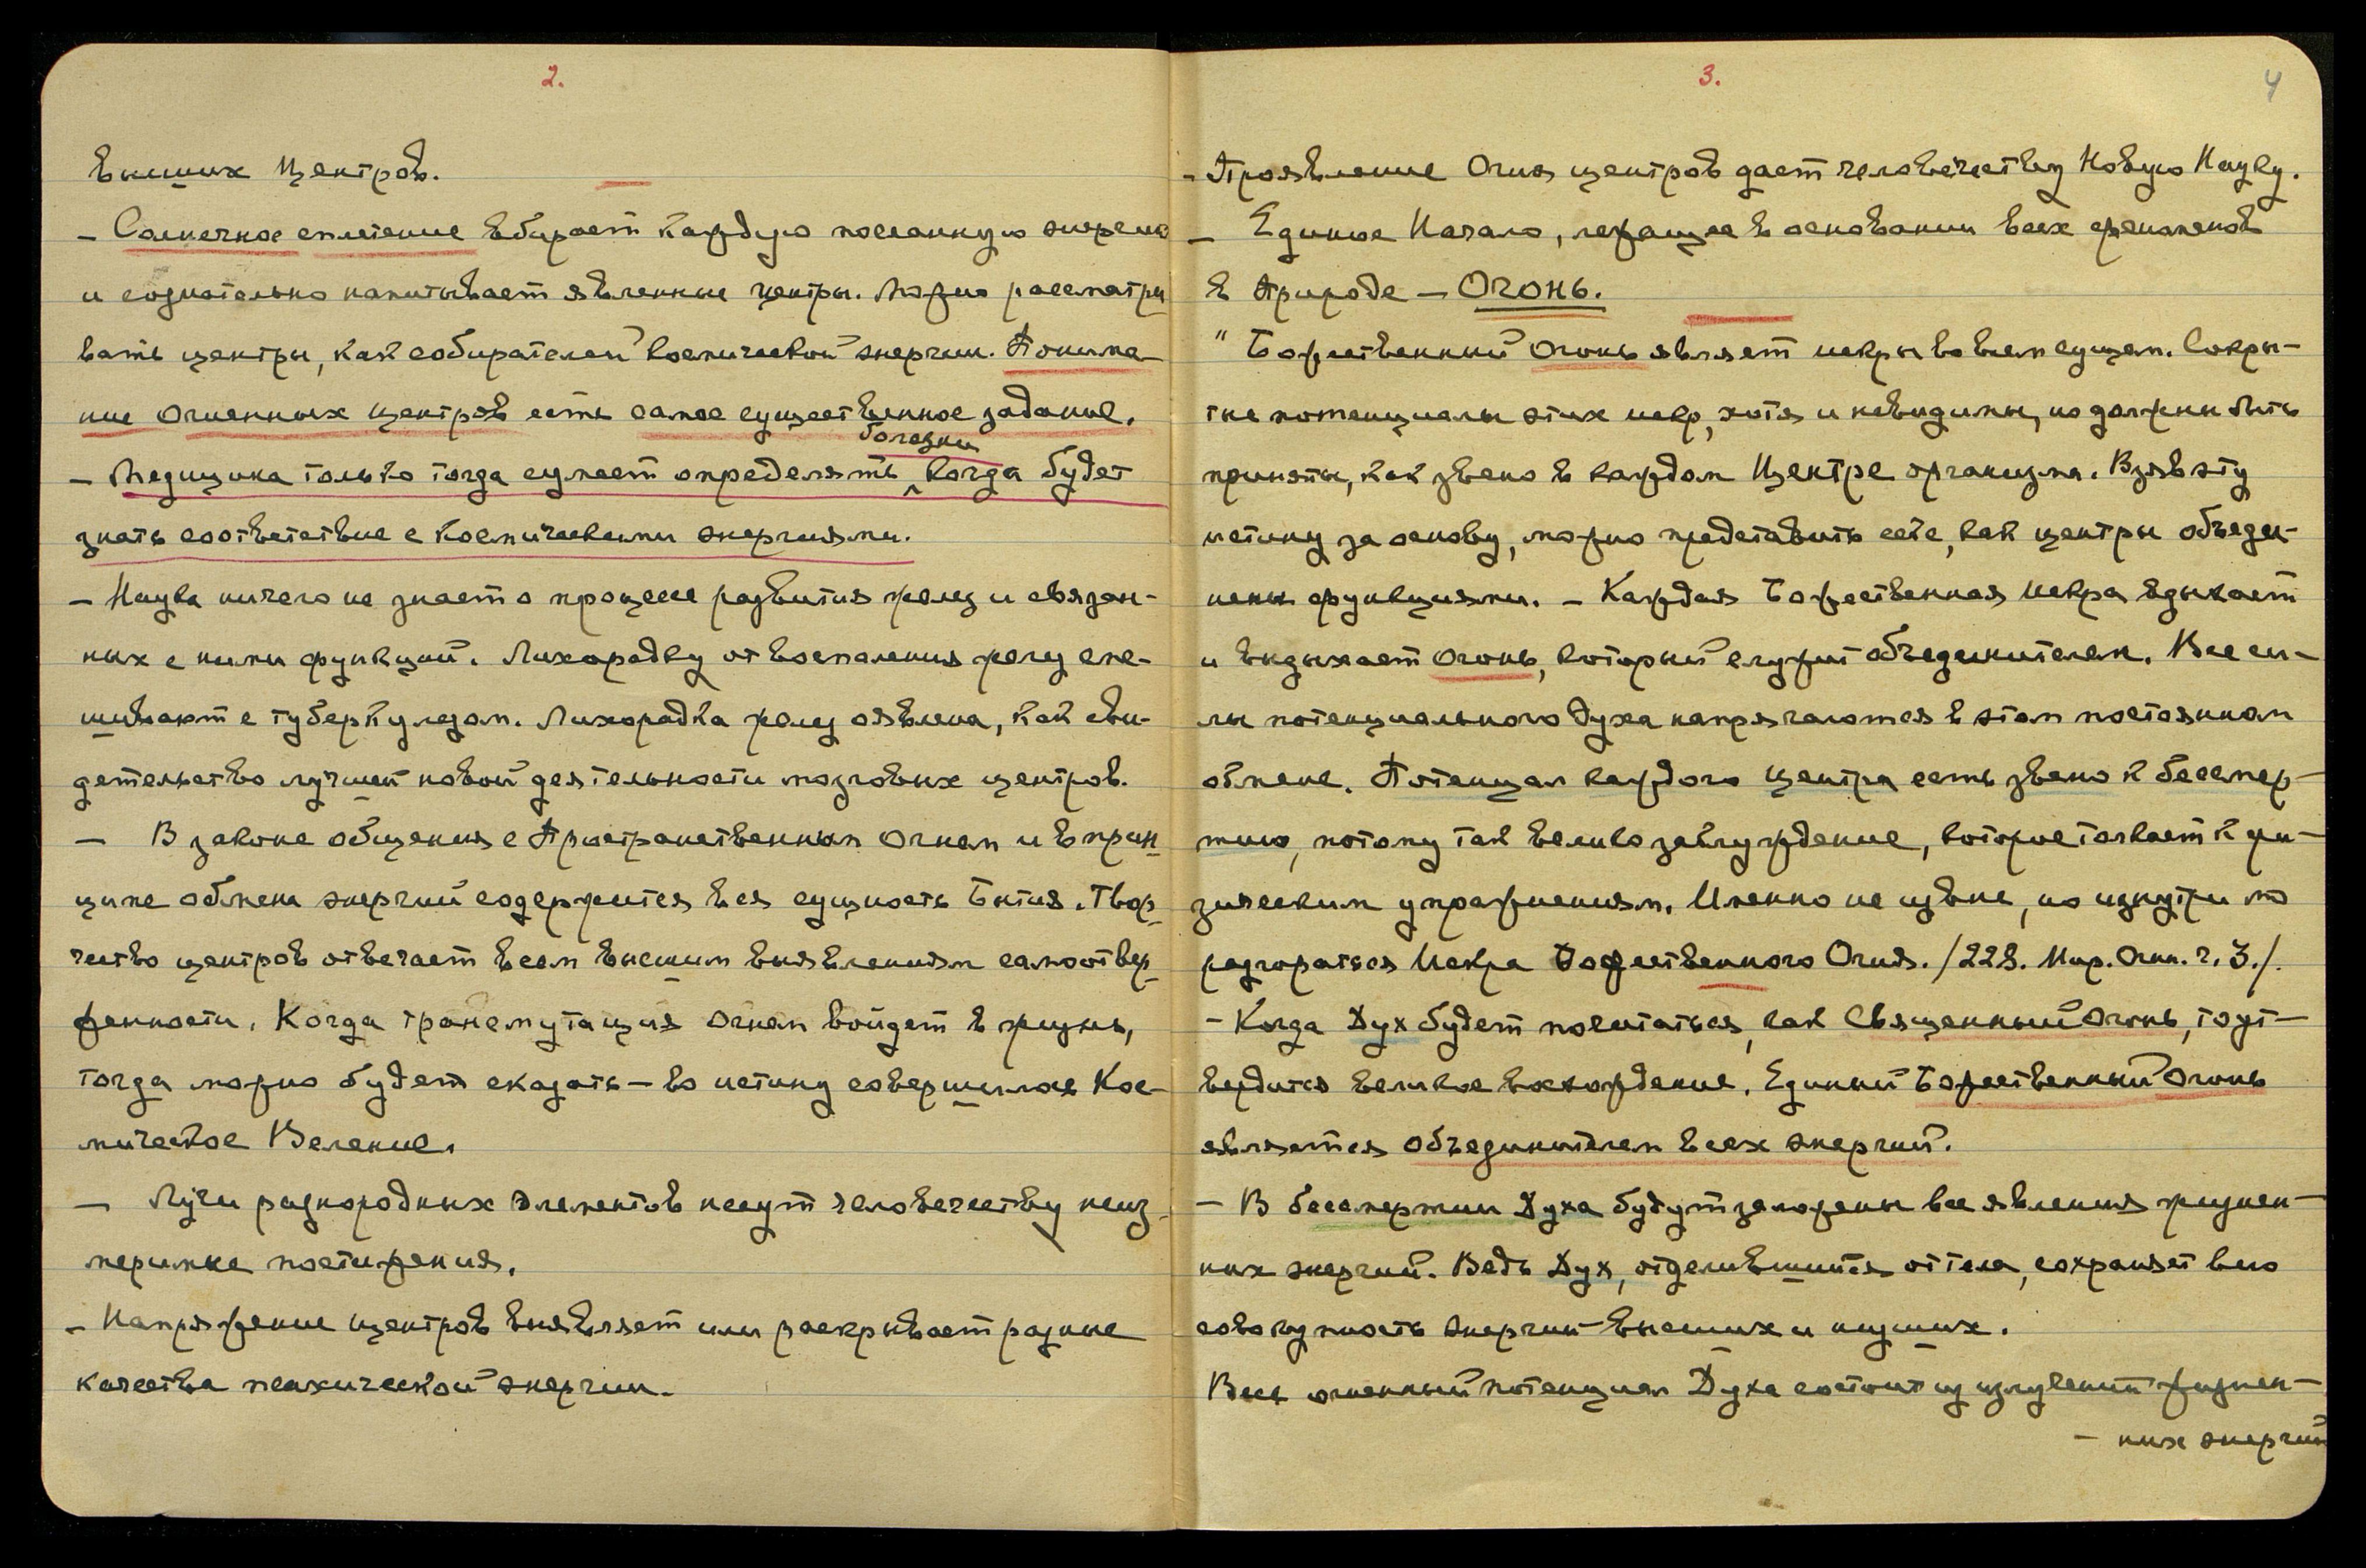 2.
высших Центров.
– Солнечное сплетение вбирает каждую посланную энергию
и сознательно напитывает явленные центры. Можно рассматри
вать центры, как собирателей космической энергии. Понима-
ние огненных центров есть самое существенное задание.
болезни
– Медицина только тогда сумеет определять когда будет
знать соответствие с Космическими энергиями.
– Наука ничего не знает о процессе развития желез и связан-
ных с ними функций. Лихорадку от воспаления желез сме-
шивают с туберкулезом. Лихорадка желез явлена, как сви-
детельство лучшей новой деятельности мозговых центров.
– В законе общения с Пространственным Огнем и в прин
ципе обмена энергий содержится вся сущность Бытия. Твор
чество центров отвечает всем высшим выявлениям самоотвер
женности. Когда трансмутация Огнем войдет в жизнь,
тогда можно будет сказать – во истину совершилось Кос-
мическое Веление.
– Лучи разнородных элементов несут человечеству неиз
меримые постижения.
– Напряжение центров выявляет или раскрывает разные
качества психической энергии.
3.
4
– Проявление Огня центров дает человечеству Новую Науку.
– Единое Начало, лежащее в основании всех феноменов
в Природе – Огонь.
" Божественный Огонь являет искры во всем сущем. Сокры-
тые потенциалы этих искр, хотя и невидимы, но должны быть
приняты, как звено в каждом Центре организма. Взяв эту
истину за основу, можно представить себе, как центры объеди-
нены функциями. – Каждая Божественная Искра вдыхает
и выдыхает Огонь, который служит объединителем. Все си-
лы потенциального духа напрягаются в этом постоянном
обмене. Потенциал каждого Центра есть звено к бессмер-
тию, потому так велико заблуждение, которое толкает к фи-
зическим упражнениям. Именно не извне, но изнутри
разгораться Искра Божественного Огня. /228. Мир. Огн. ч. 3./.
– Когда Дух будет почитаться, как Священный Огонь, то ут-
вердится великое восхождение. Единый Божественный Огонь
является объединителем всех энергий.
– В бессмертии Духа будут заложены все явления жизнен-
ных энергий. Ведь Дух, отделившийся от тела, сохраняет всю
совокупность энергий высших и низших.
Весь огненный потенциал Духа состоит из излучений жизнен-
– ных энергий